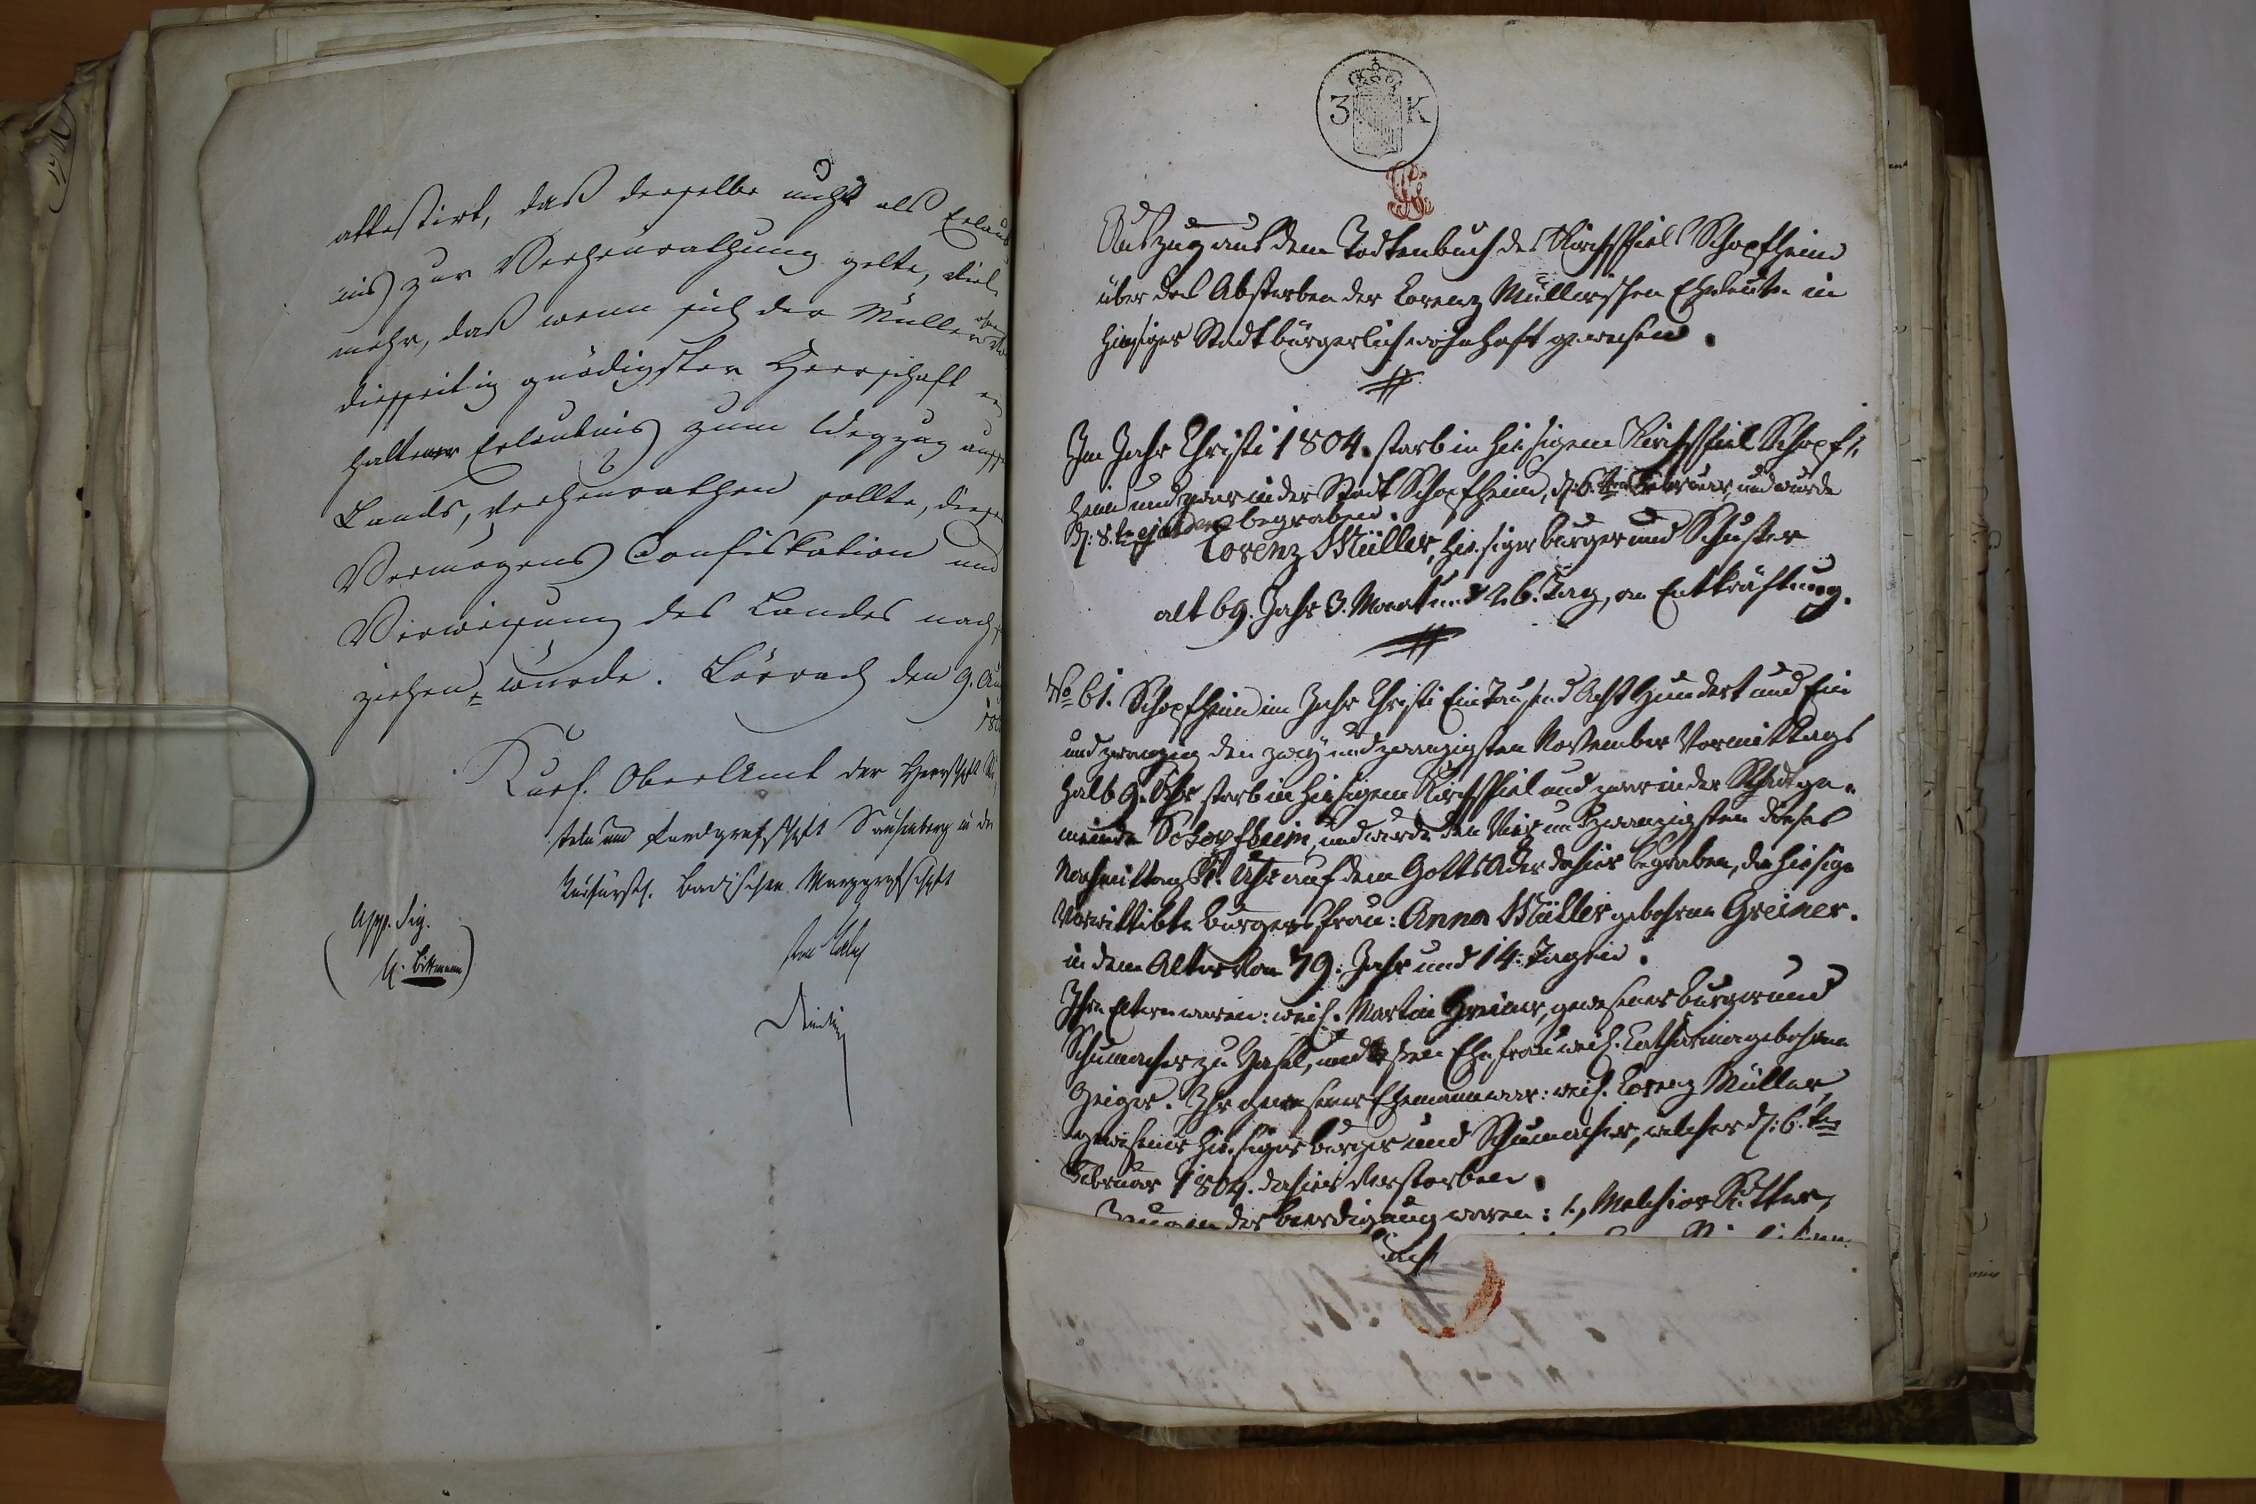 attestirt, daß derselbe nicht als Erlaub
nis zur Verheurathung gelte, viel
mehr, daß wenn sich der Müller ohne
diesseitig gnädigster Herrschaft er
haltener Erlaubnis zum Wegzug ausser
Lands, verheurathen sollte, dieses
Vermögens Confiskation und
Verweisung des Landes nach
ziehen würde. Lörrach den 9. Aug
180
Kurf. OberAmt der Herrschft Rö,
teln und Landgrafschaft Sausenberg in der
Kurfürstl. Badischen Marggrafschaft
App. Sig.
3 K
Auszug aus dem Todtenbuch des Kirchspiels Schopfheim
über das Absterben der Lorenz Müllerischen Eheleute in
hiesiger Stadt bürgerlich wohnhaft gewesen.
Im Jahr Christi 1804. starb in hiesigem Kirchspiel Schopf,
heim und zwar in der Stadt Schopfheim, d. 6.ten Februar, und wurde
d. 8.ten ejusdem begraben.
Lorenz Müller, hiesiger Burger und Schuster
alt 69. Jahr 3. Monat und 26. Tag, an Entkräftung.
No 61. Schopfheim im Jahr Christi Ein Tausend Acht Hundert und Ein
und zwanzig den zwey und zwanzigsten November Vormittags
halb 9. Uhr starb in hiesigem Kirchspiel und zwar in der Stadtge-
meinde Schopfheim, und wurde den Vier und zwanzigsten dieses
Nachmittags 1. Uhr auf dem GottsAcker dahier begraben, die hiesige
Verwittibte Burgers Frau: Anna Müller gebohrne Greiner.
in dem Alter von 79. Jahr und 14. Tagen.
Ihre Eltern waren: weil. Martin Greiner, gewesener Burger und
Schumacher zu Hasel, und dessen Ehefrau weil. Catharina gebohrne
Geiger. Ihr gewesener Ehemann war: weil. Lorenz Müller,
gewesener hiesiger Burger und Schumacher, welcher d. 6.ten
Februar 1804. dahier verstorben.
Zeugen der Beerdigung waren: 1, Melchior Sütterl,